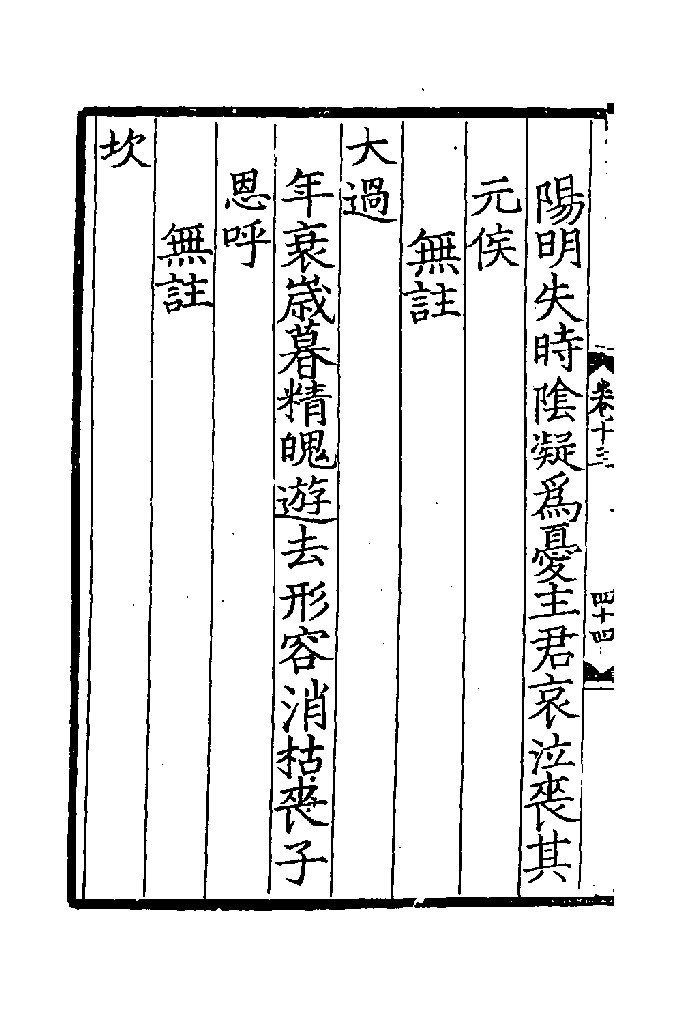 卷十三
四十四
陽明失時陰凝爲憂主君哀泣喪其
元侯
無註
大過
年衰歲暮精魄遊去形容消枯喪子
恩呼
無註
坎